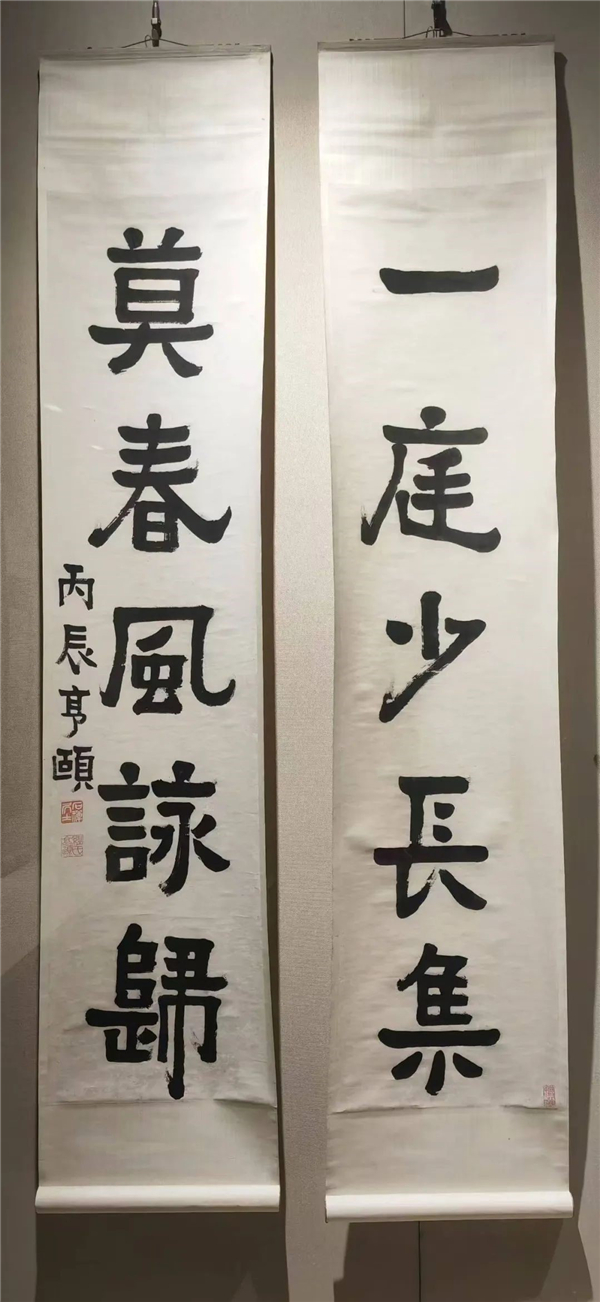 一庭少長集
莫春風詠歸
丙辰亨頤